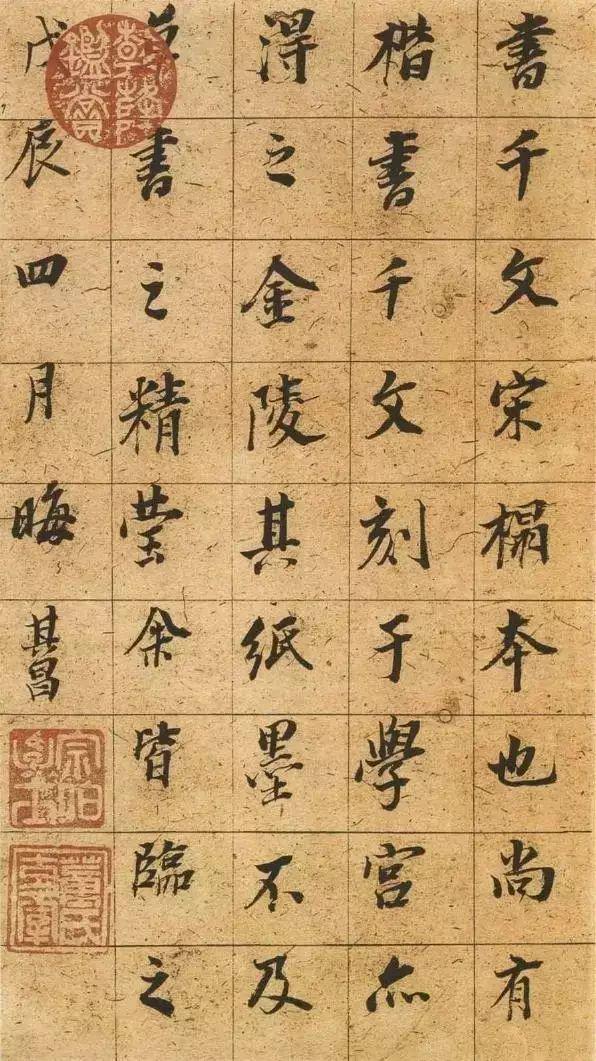 書千文宋榻本也尚有
楷書千文刻于學宮亦
得之金陵其紙墨不及
書之精瑩余皆臨之
戊辰四月晦其昌
乾隆鑑賞
宗伯學士
董氏玄宰